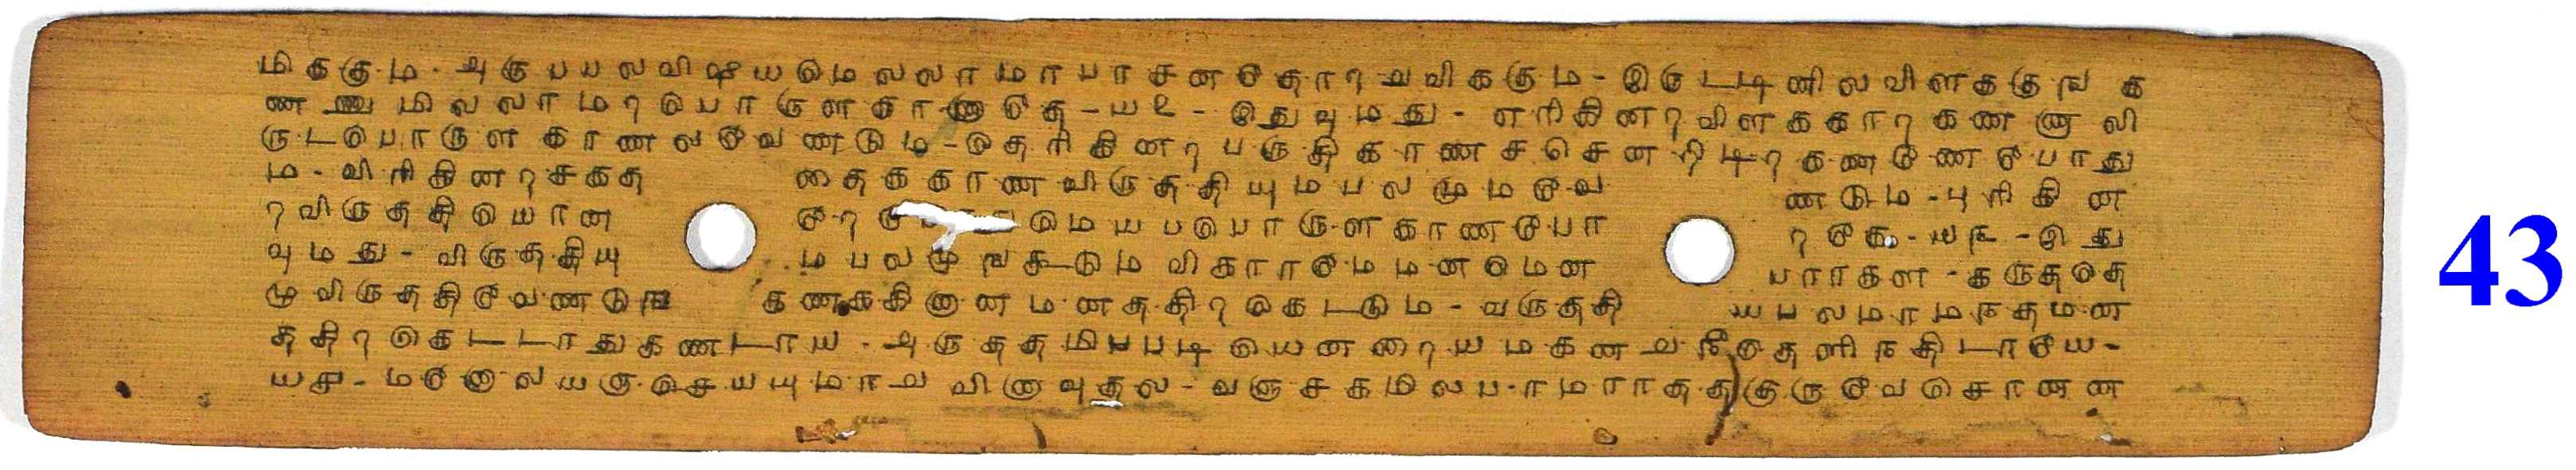 மிககும - அருபயலவிஷயமெலலாமாபாசனதேதாரவவிககும - இருட்டினிலவிளககுங க
ணணுமிலலாமரபொருளகாணாதே - ய௨ - இதுவுமது - எரிகினரவிளககாரகணணுவி
ருடபொருளகாணலவேணடும - தெரிகினரபருதிகாணசசெனரிடரகணணேபோது
ம - விரிகினரசகத தைககாணவிருததியுமபலமுமவே ணடும - புரிகின
ரவிருததியொன றேரு டுமெயபபொருளகாணபோ ரகே - ய௩ - இது
வுமது - விருததியு மபலமுஙகூடுமவிகாரமேமமனமென பாரகள - கருததெ
முவிருததிவேணடுங கணககினானமனததிரகெடடும - வருததி யபலமாமநதமன
ததிரகெடடாதுகணடாய - அருததமிபபடியெனறையமகனவநீதெளிநதிடாயே -
ய௪ - மனோலயஞசெயயுமாவவினாவுதல - வஞசகமிலபராமராதகுருவேசொனன